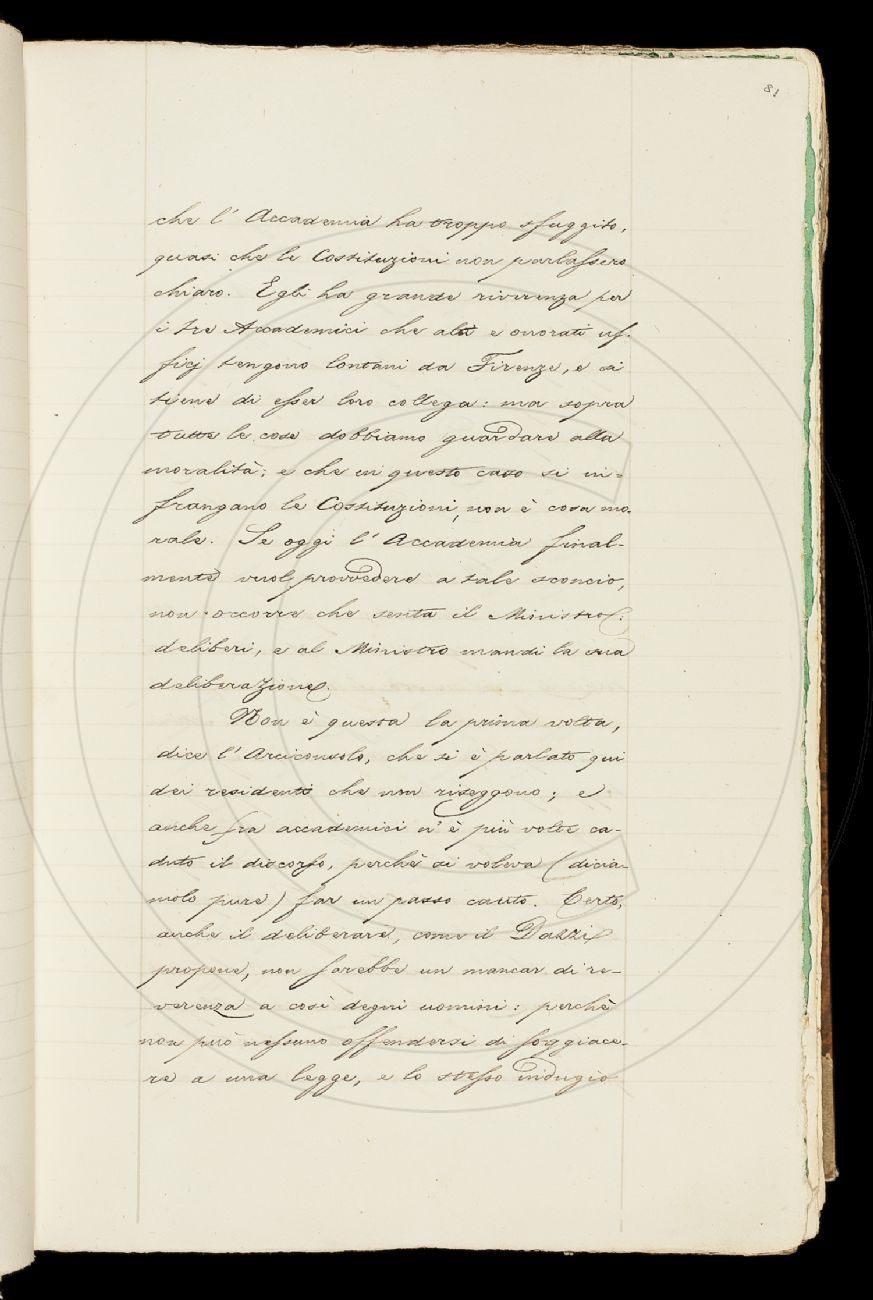 81
che l'Accademia ha troppo sfuggito,
quasi che le Costituzioni non parlassero
chiaro. Egli ha grande riverenza per
i tre Accademici che alti e onorati uf-
ficj tengono lontani da Firenze, e si
tiene di esser loro collega: ma sopra
tutte le cose dobbiamo guardare alla
moralità; e che in questo caso si in-
frangano le Costituzioni, non è cosa mo-
rale. Se oggi l'Accademia final-
mente vuol provvedere a tale sconcio,
non occorre che senta il Ministro:
deliberi, e al Ministro mandi la sua
deliberazione.
Non è questa la prima volta,
dice l'Arciconsolo, che si è parlato qui
dei residenti che non riseggono; e
anche fra accademici n'è più volte ca-
duto il discorso, perchè si voleva (dicia-
molo pure) far un passo cauto. Certo,
anche il deliberare, come il Dazzi
propone, non sarebbe un mancar di re-
verenza a così degni uomini: perchè
non può nessuno offendersi di soggiace-
re a una legge, e lo stesso indugio